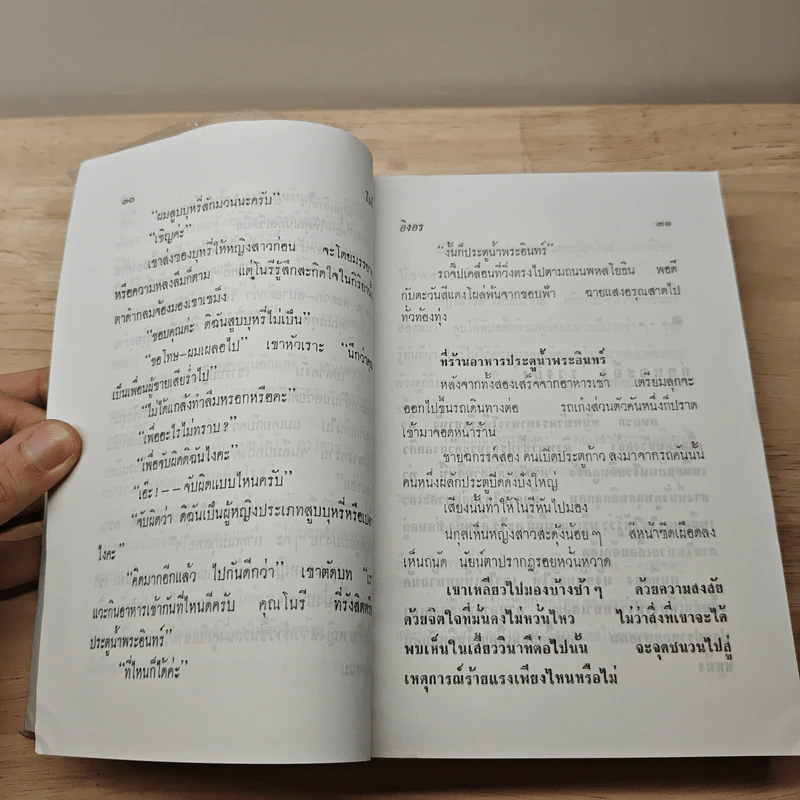 ๓๐
“ผมสูบบุหรี่สักมวนนะครับ”
“เชิญค่ะ”
เขาส่งซองบุหรี่ให้หญิงสาวก่อน จะโดยมรรยาท
หรือความหลงลืมก็ตาม แต่โนรีรู้สึกสะกิดใจในกิริยานั้น
ตาดำกลมจ้องมองเขาเขม็ง
“ขอบคุณค่ะ ดิฉันสูบบุหรี่ไม่เป็น”
“ขอโทษ-ผมเผลอไป” เขาหัวเราะ “นึกว่าคุณ
เป็นเพื่อนผู้ชายเสียร่ำไป”
“ไม่ได้แกล้งทำลืมหรอกหรือคะ”
“เพื่ออะไรไม่ทราบ?”
“เพื่อจับผิดดิฉันไงคะ”
“เอ๊ะ!--จับผิดแบบไหนครับ”
“จับผิดว่า ดิฉันเป็นผู้หญิงประเภทสูบบุหรี่หรือเปล่า
ไงคะ”
“คิดมากอีกแล้ว ไปกันดีกว่า” เขาตัดบท
แวะกินอาหารเช้ากันที่ไหนดีครับ คุณโนรี ที่รังสิตหรือ
ประตูน้ำพระอินทร์”
“ที่ไหนก็ได้ค่ะ”
อิงอร
๓๑
“งั้นก็ประตูน้ำพระอินทร์”
รถจี๊ปเคลื่อนที่วิ่งตรงไปตามถนนพหลโยธิน พอดี
กับตะวันสีแดงโผล่พ้นจากขอบฟ้า ฉายแสงอรุณสาดไป
ทั่วท้องทุ่ง
ที่ร้านอาหารประตูน้ำพระอินทร์
หลังจากทั้งสองเสร็จจากอาหารเช้า เตรียมลุกจะ
ออกไปขึ้นรถเดินทางต่อ รถเก๋งส่วนตัวคันหนึ่งก็ปราด
เข้ามาจอดหน้าร้าน
ชายฉกรรจ์สองคนเปิดประตูก้าวลงมาจากรถคันนั้น
คนหนึ่งผลักประตูปิดดังปังใหญ่
เสียงนั้นทำให้โนรีหันไปมอง
นกุลเห็นหญิงสาวสะดุ้งน้อยๆ สีหน้าซีดเผือดลง
เห็นถนัด นัยน์ตาปรากฏรอยหวั่นหวาด
เขาเหลียวไปมองบ้างช้าๆ ด้วยความสงสัย
ด้วยจิตใจที่มั่นคงไม่หวั่นไหว ไม่ว่าสิ่งที่เขาจะได้
พบเห็นในเสี้ยววินาทีต่อไปนั้น จะจุดชนวนไปสู่
เหตุการณ์ร้ายแรงเพียงไหนหรือไม่